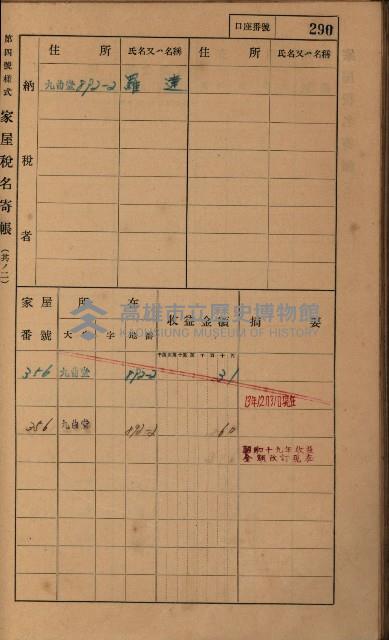 口座番號 290
第四號樣式 家屋稅名寄帳 (其ノ二)
納稅者
住所 氏名又ハ名稱 住所 氏名又ハ名稱
九曲堂892-2 羅達
家屋番號 所在 收益金額 摘要
大字 地番
高雄市立歷史博物館
KAOHSIUNG MUSEUM OF HISTORY
356 九曲堂 892-2 31
13年12月31日現在
356 九曲堂 892-2 60
昭和十九年收益
金額改訂現在